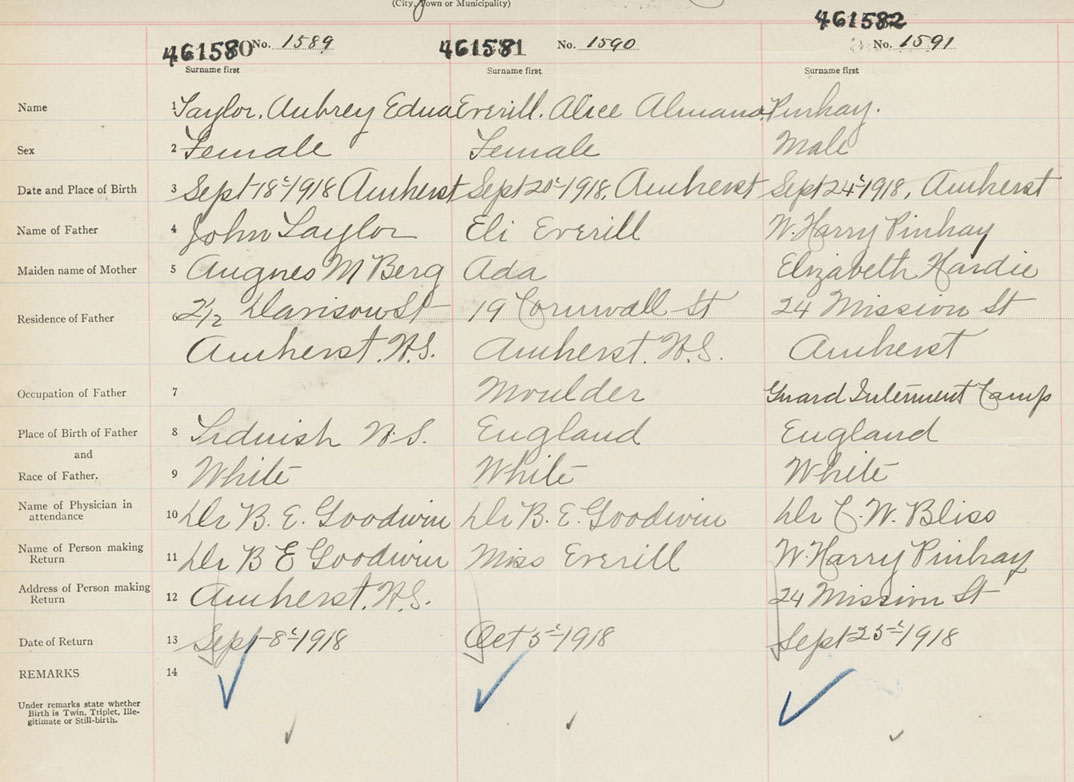 (City, Town or Municipality)
461580 No. 1589 461581 No. 1590 461582 No. 1591
Surname first Surname first Surname first
Name 1 Taylor. Aubrey Edna Everill. Alice Almana. Pinhay.
Sex 2 Female Female Male
Date and Place of Birth 3 Sept 18 1918 Amherst Sept 20 1918. Amherst Sept 24 1918, Amherst
Name of Father 4 John Taylor Eli Everill W. Harry Pinhay
Maiden name of Mother 5 Augnes M Berg Ada Elizabeth Hardie
Residence of Father 6 2½ Davison St 19 Cornwall St 24 Mission St
Amherst. N.S. Amherst. N.S. Amherst
Occupation of Father 7 Moulder Guard Interment Camp
Place of Birth of Father 8 N.S. England England
and
Race of Father. 9 White White White
Name of Physician in attendance 10 Dr B. E. Goodwin Dr B. E. Goodwin Dr C. W. Bliss
Name of Person making Return 11 Dr B E Goodwin Miss Everill W. Harry Pinhay
Address of Person making Return 12 Amherst. N.S. 24 Mission St
Date of Return 13 Sept 8 1918 Oct 5 1918 Sept 25 1918
REMARKS 14
Under remarks state whether
Birth is Twin, Triplet, Ille-
gitimate or Still-birth.